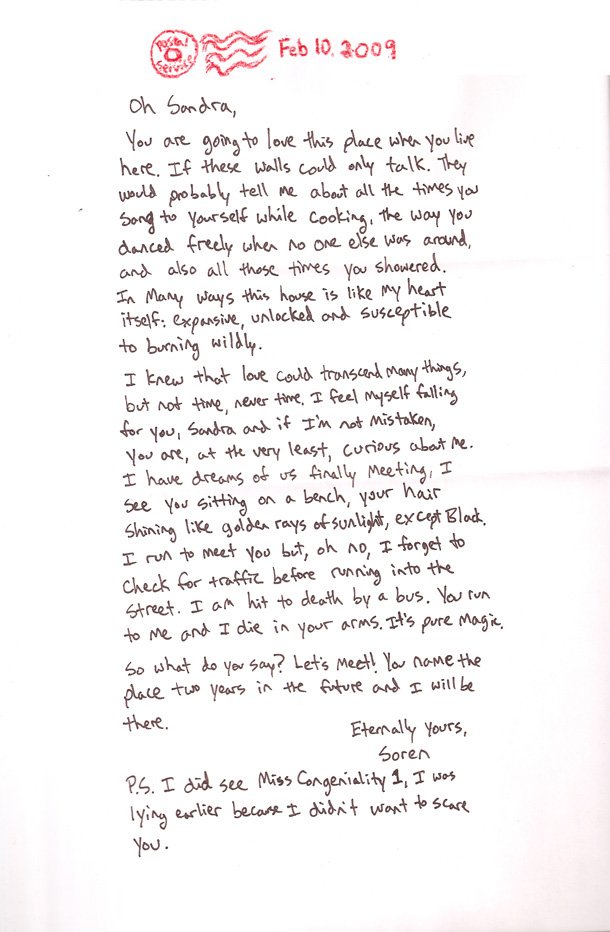 Postal Service
Feb 10, 2009
Oh Sandra,
You are going to love this place when you live
here. If these walls could only talk. They
would probably tell me about all the times you
sang to yourself while cooking, the way you
danced freely when no one else was around,
and also all those times you showered.
In Many ways this house is like my heart
itself: expansive, unlocked and susceptible
to burning wildly.
I knew that love could transcend many things,
but not time, never time. I feel myself falling
for you, Sandra and if I'm not mistaken,
you are, at the very least, curious about me.
I have dreams of us finally meeting, I
see you sitting on a bench, your hair
shining like golden rays of sunlight, except Black.
I run to meet you but, oh no, I forget to
check for traffic before running into the
street. I am hit to death by a bus. You run
to me and I die in your arms. It's pure magic.
So what do you say? Let's meet! You name the
place two years in the future and I will be
there.
Eternally yours,
Soren
P.S. I did see Miss Congeniality 1, I was
lying earlier because I didn't want to scare
you.